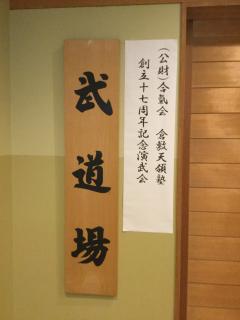 (公財)合氣会 倉敷天領塾
創立十七周年記念演武会
武道場